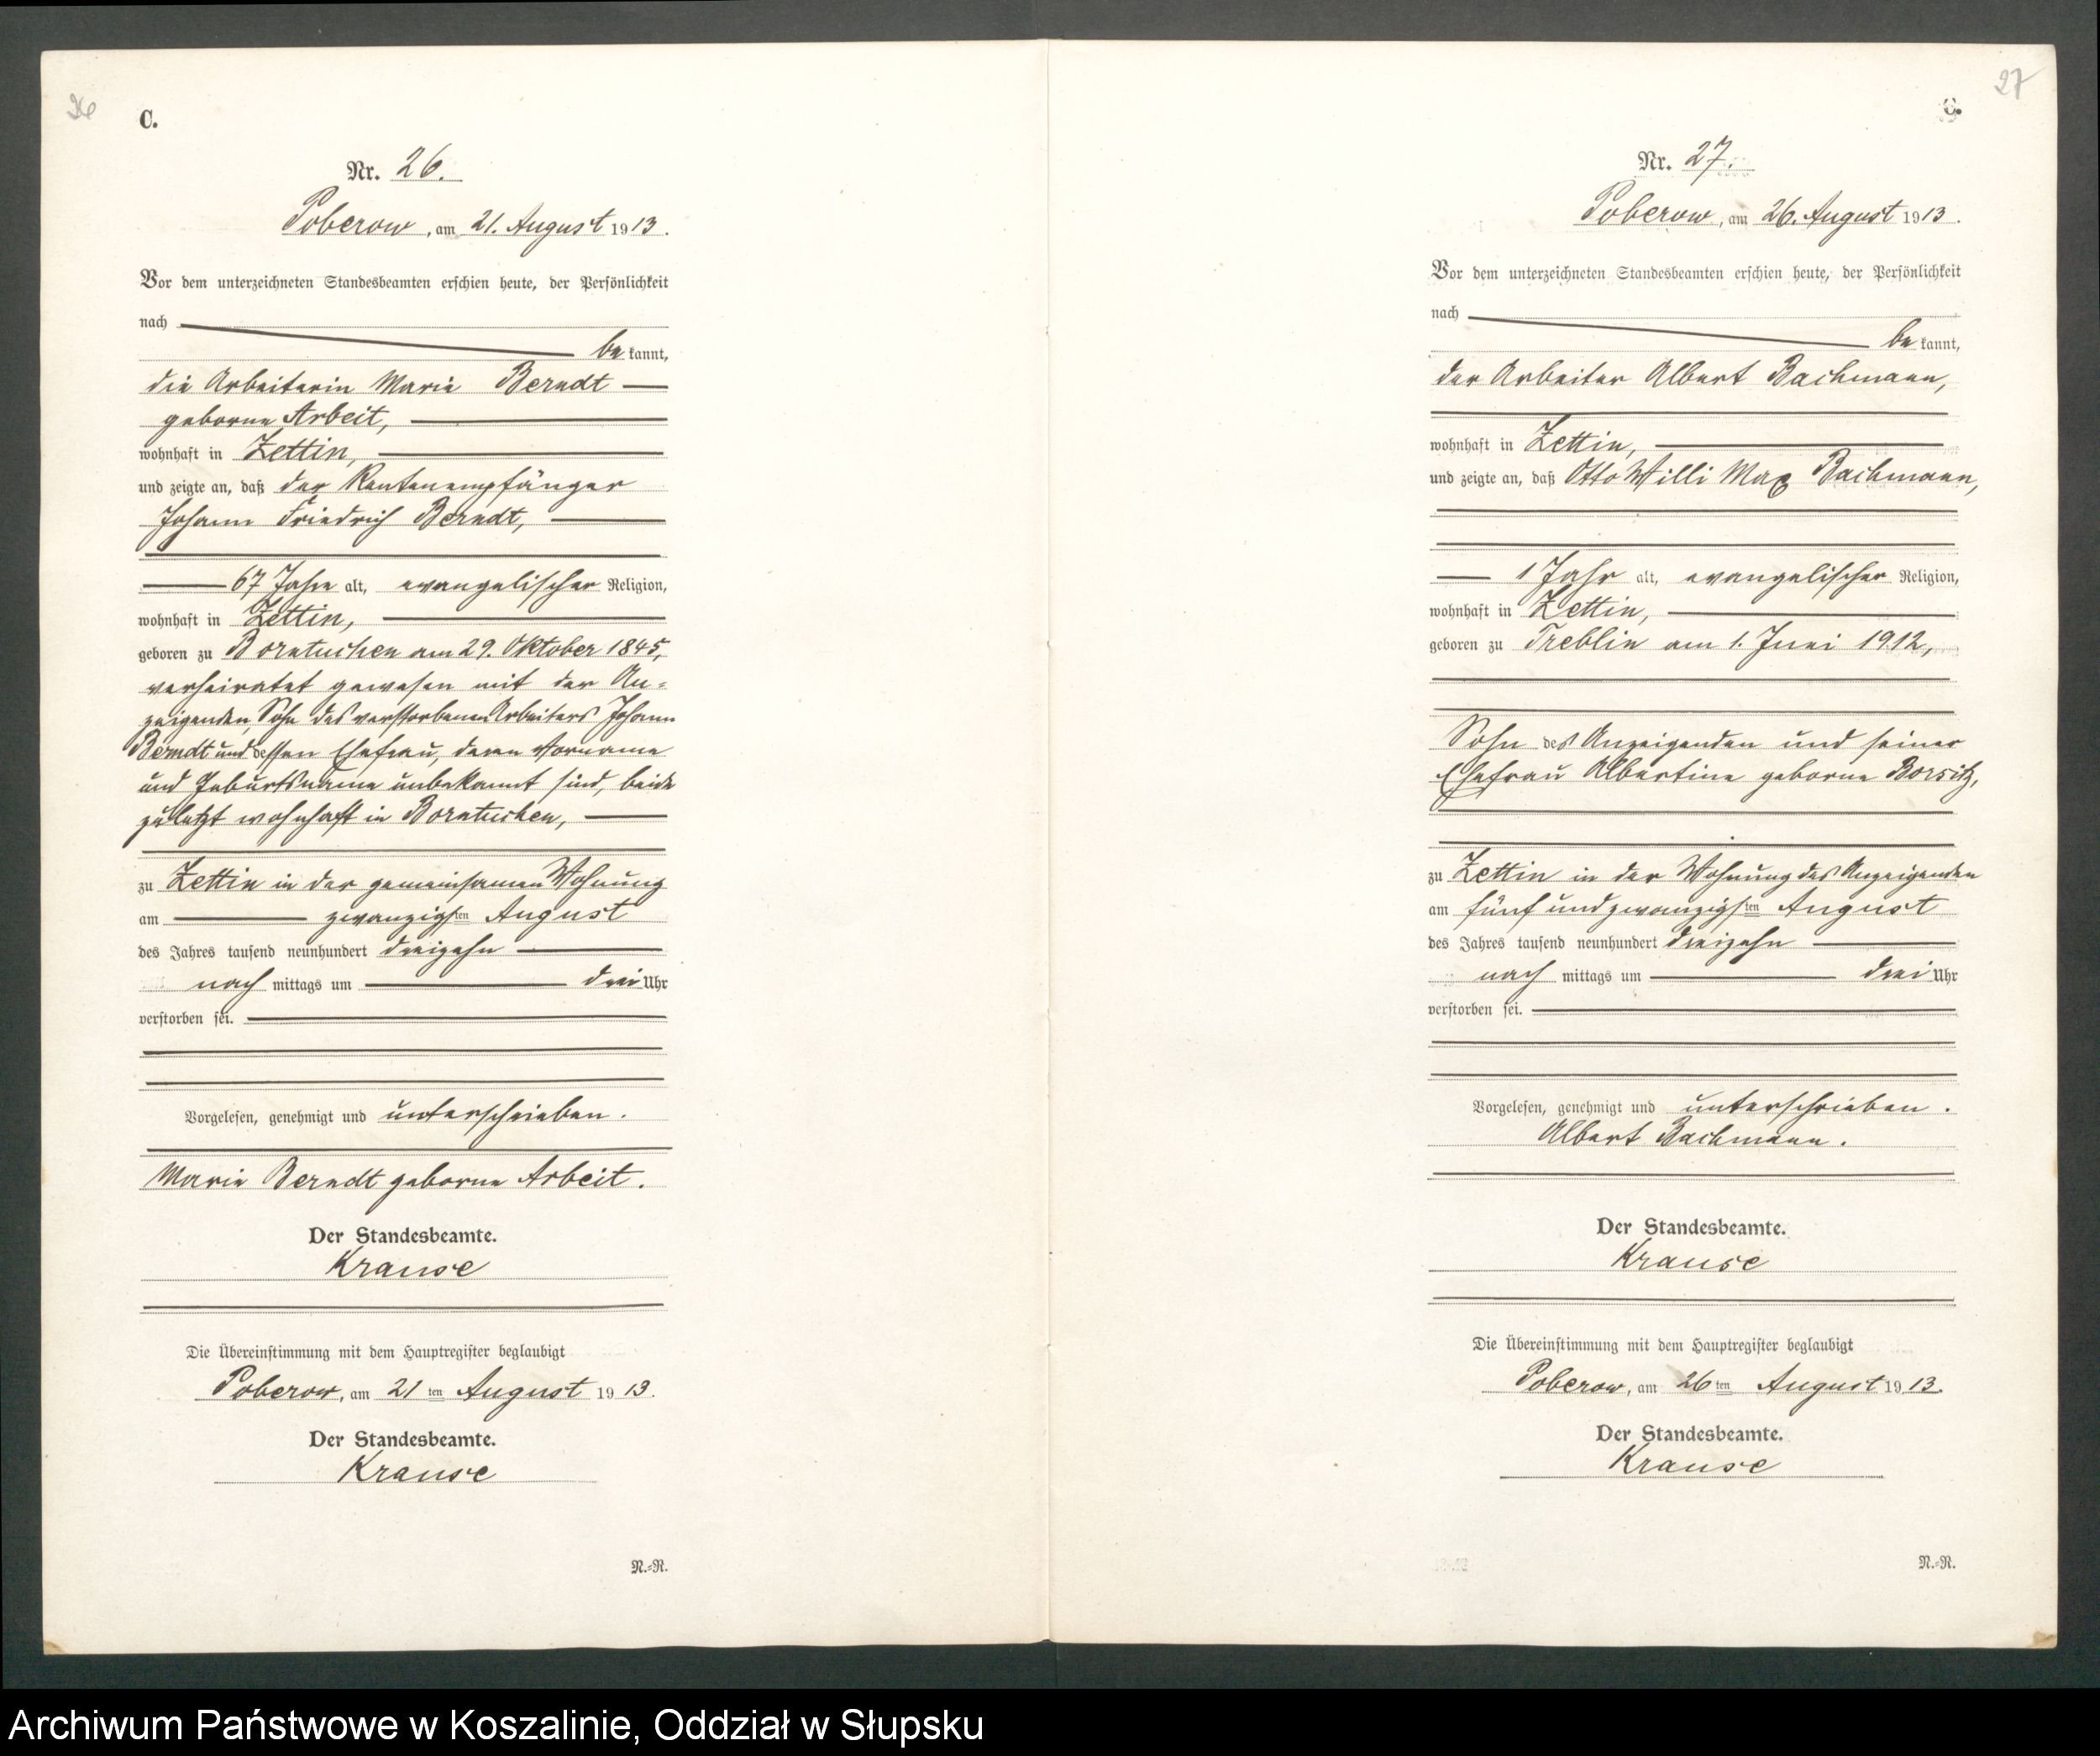 26
C.
Nr. 26.
Poberow, am 21. August 1913.
Vor dem unterzeichneten Standesbeamten erschien heute, der Persönlichkeit
nach
be kannt,
die Arbeiterin Marie Berndt
geborne Arbeit,
wohnhaft in Zettin,
und zeigte an, daß der Rentenempfänger
Johann Friedrich Berndt,
67 Jahre alt, evangelischer Religion,
wohnhaft in Zettin,
geboren zu Borntuchen am 29. Oktober 1845,
verheiratet gewesen mit der An-
zeigenden, Sohn des verstorbenen Arbeiters Johann
Berndt und dessen Ehefrau, deren Vorname
und Geburtsname unbekannt sind, beide
zuletzt wohnhaft in Borntuchen,
zu Zettin in der gemeinsamen Wohnung
am zwanzigsten August
des Jahres tausend neunhundert dreizehn
nach mittags um drei Uhr
verstorben sei.
Vorgelesen, genehmigt und unterschrieben.
Marie Berndt geborne Arbeit.
Der Standesbeamte.
Krause
Die Übereinstimmung mit dem Hauptregister beglaubigt
Poberow, am 21ten August 1913.
Der Standesbeamte.
Krause
N.-R.
27
C.
Nr. 27.
Poberow, am 26. August 1913.
Vor dem unterzeichneten Standesbeamten erschien heute, der Persönlichkeit
nach
be kannt,
der Arbeiter Albert Bachmann,
wohnhaft in Zettin,
und zeigte an, daß Otto Willi Max Bachmann,
1 Jahr alt, evangelischer Religion,
wohnhaft in Zettin,
geboren zu Treblin am 1. Juni 1912,
Sohn des Anzeigenden und seiner
Ehefrau Albertine geborne Borsitz,
zu Zettin in der Wohnung des Anzeigenden
am fünf und zwanzigsten August
des Jahres tausend neunhundert dreizehn
nach mittags um drei Uhr
verstorben sei.
Vorgelesen, genehmigt und unterschrieben.
Albert Bachmann.
Der Standesbeamte.
Krause
Die Übereinstimmung mit dem Hauptregister beglaubigt
Poberow, am 26ten August 1913.
Der Standesbeamte.
Krause
N.-R.
Archiwum Państwowe w Koszalinie, Oddział w Słupsku